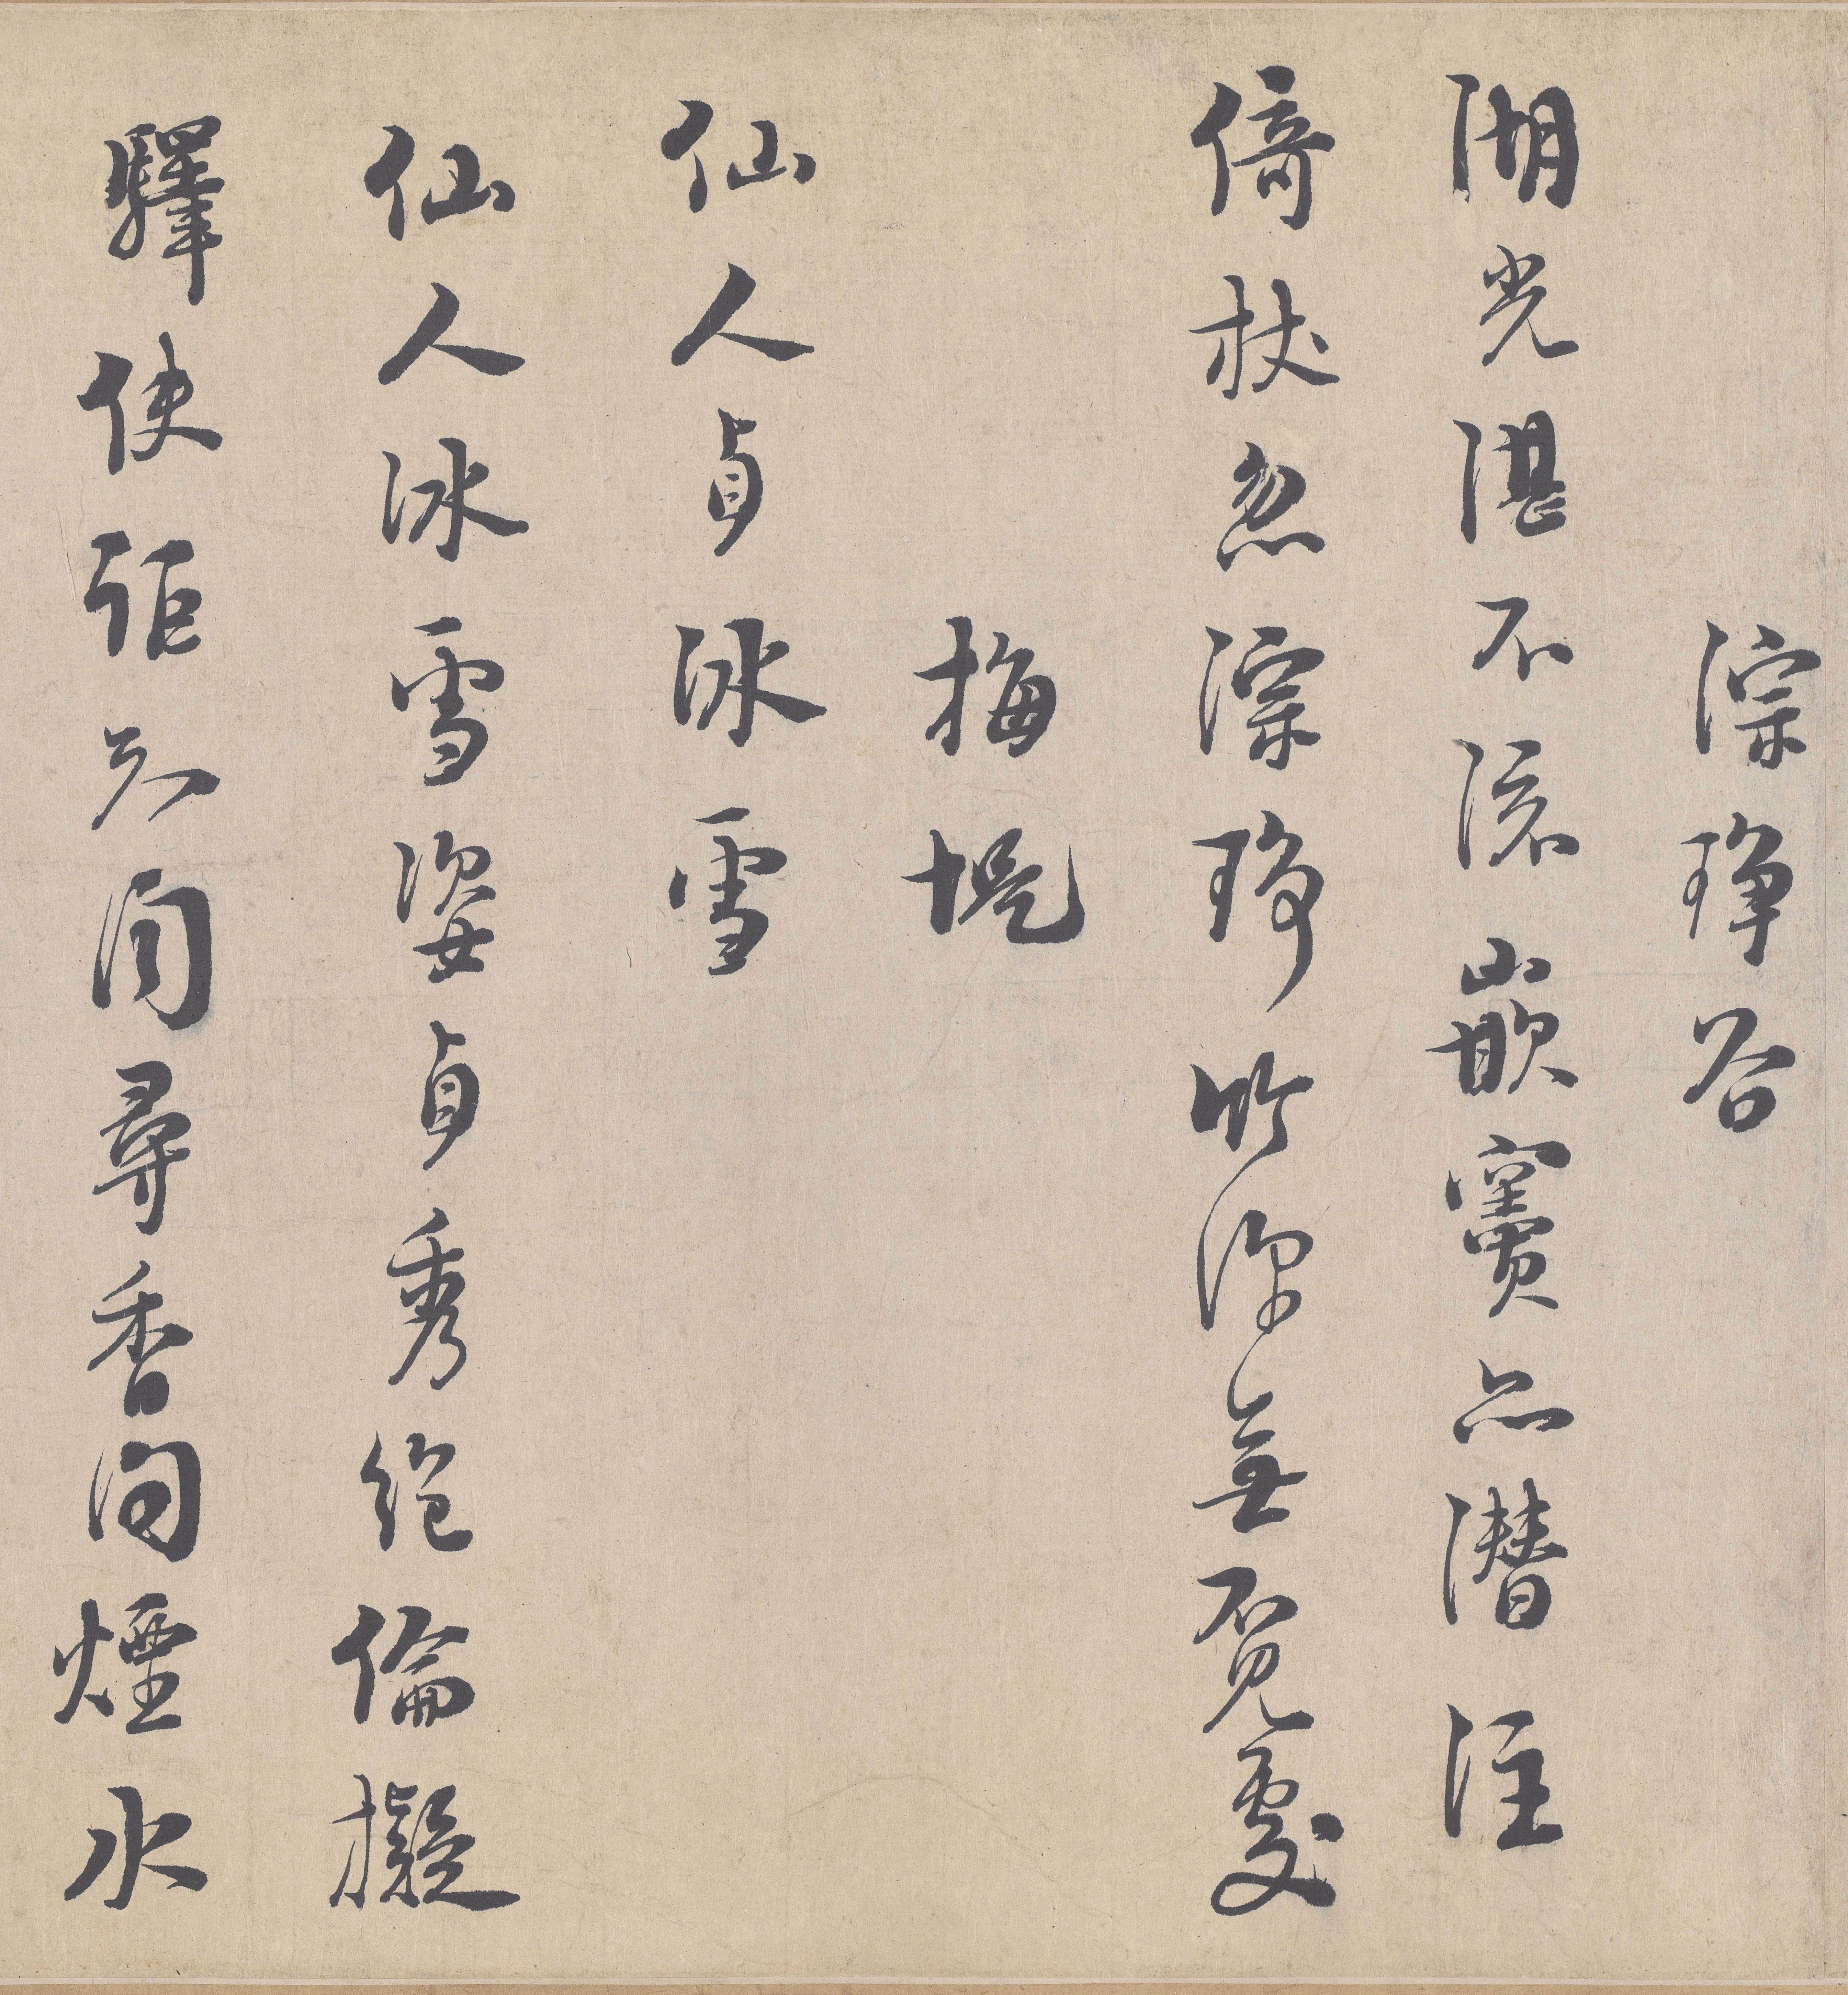 淙琤谷
湖光湛不流嵌竇亦潛注
倚杖忽淙琤竹深無覓處
梅堤
仙人貞冰雪
仙人冰雪姿貞秀絕倫擬
驛使詎知聞尋香問煙水